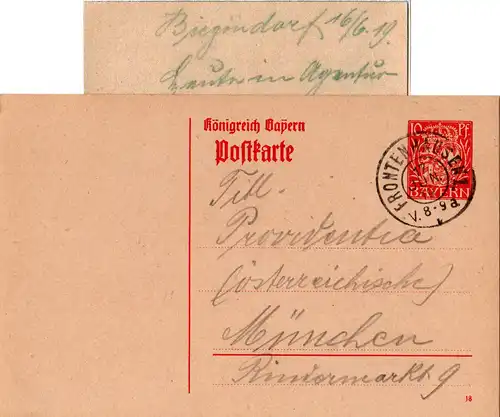 Biegendorf 16/6.19.
Heute in Agentur
Königreich Bayern
Postkarte
10 PF
BAYERN
FRONTENHAUSEN
V. 8-9
Titl.
Providentia
(österreichische)
München
Rindermarkt 9
18